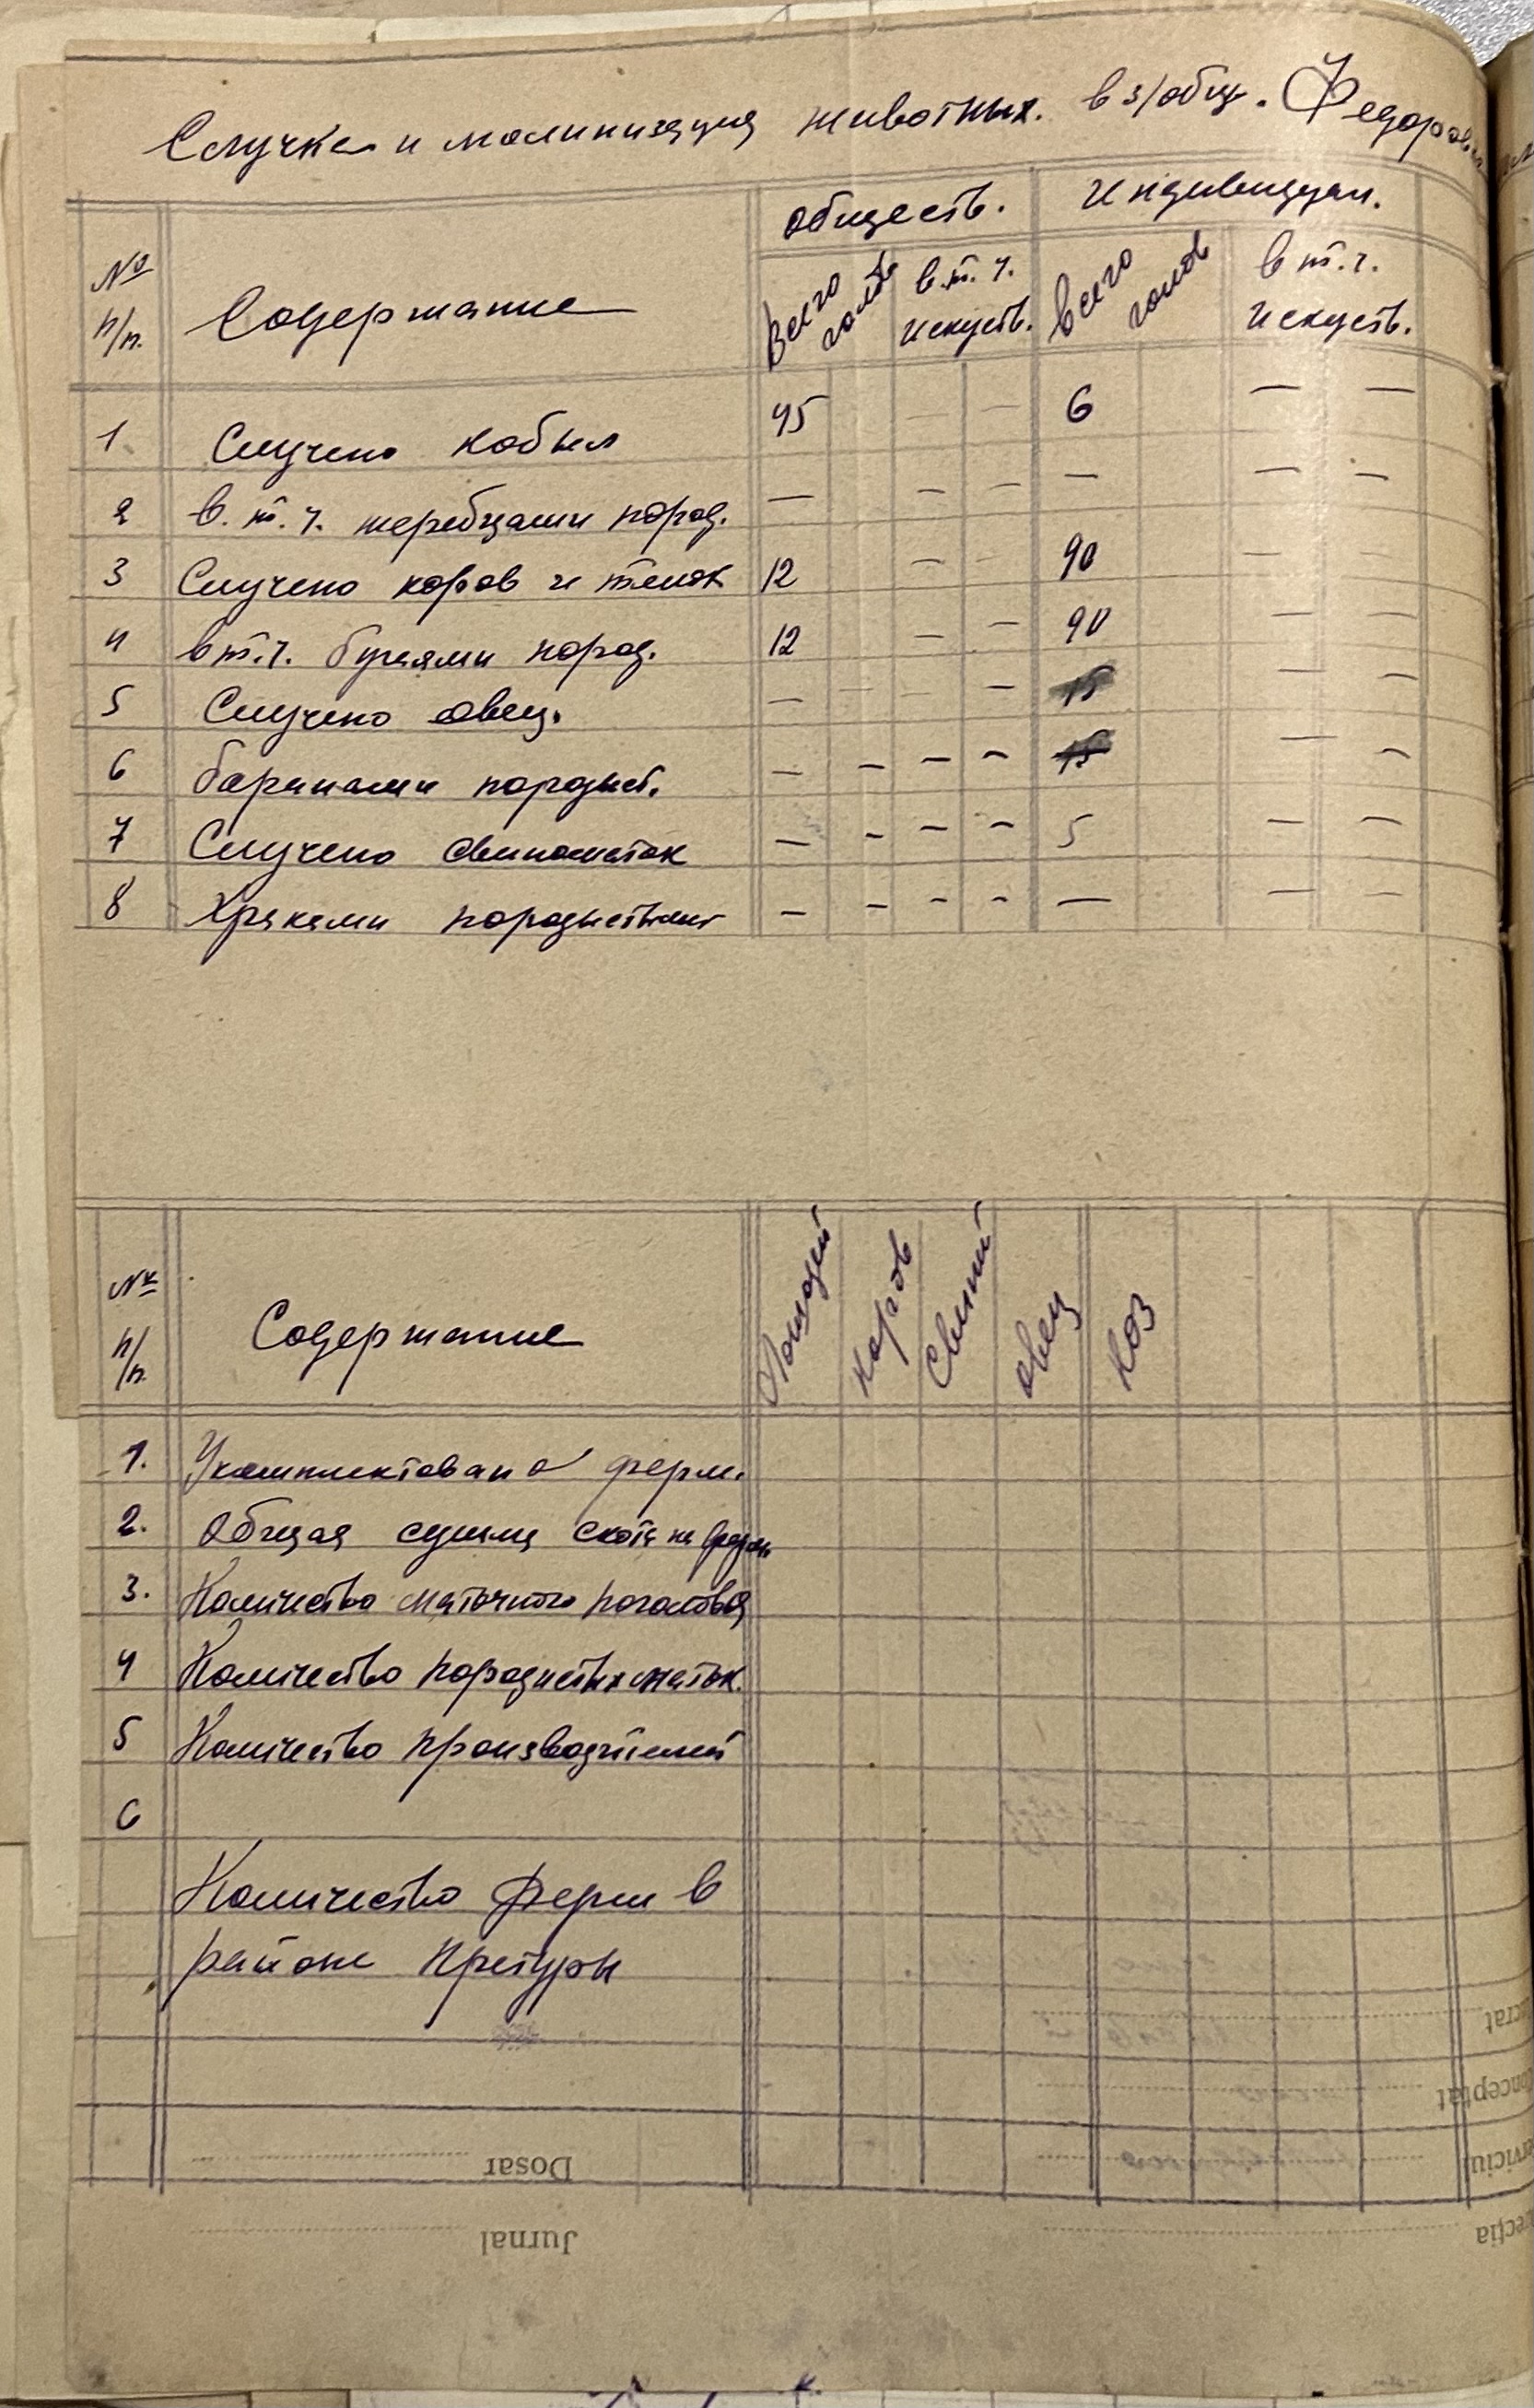 Случка и малинизация животных. в з/общ. Федоровка
№ п/п. Содержание обществ. индивидуал.
Всего голов в т. ч. искуств. Всего голов в т. ч. искуств.
1 Случено кобыл 45 — — 6 — —
2 в. т. ч. жеребцами пород. — — — — — —
3 Случено коров и телок 12 — — 90 — —
4 в т. ч. бугаями пород. 12 — — 90 — —
5 Случено овец. — — — — 15 — —
6 баранами породист. — — — — 15 — —
7 Случено свиноматок — — — — 5 — —
8 Хряками породистыми — — — — — — —
№ п/п. Содержание Лошадей Коров Свиней Овец Коз
1. Укомплектовано ферм.
2. Общая сумма скота на ферм.
3. Количество маточного поголовья
4 Количество породистых маток.
5 Количество производителей
6
Количество Ферм в
районе Претуры
Dosar
Jurnal